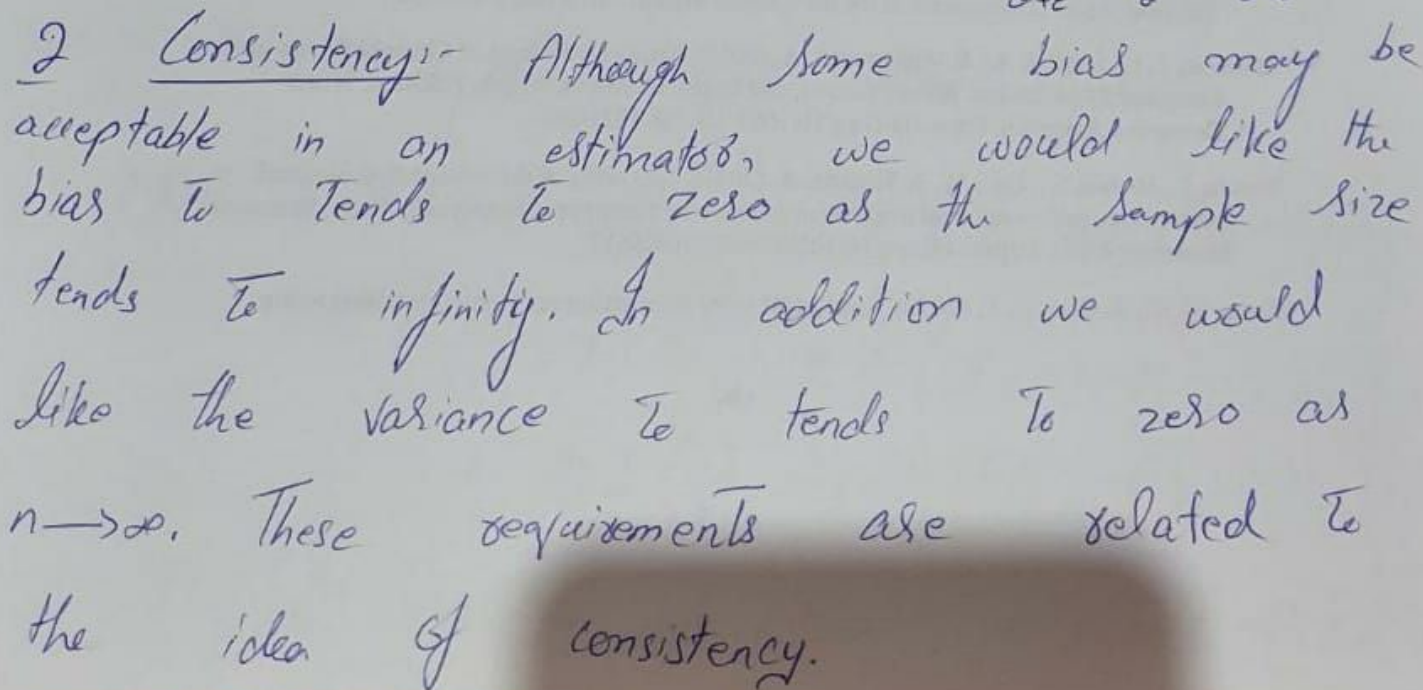 2 Consistency:- Although some bias may be
acceptable in an estimator, we would like the
bias to Tends to zero as the sample size
tends to infinity. In addition we would
like the variance to tends to zero as
n→∞. These requirements are related to
the idea of consistency.